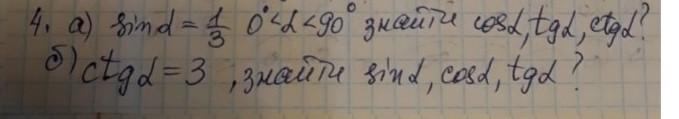 4. а) sin α = 1/3 0°<α<90° знайти cosα, tgα, ctgα?
б) ctgα = 3, знайти sinα, cosα, tgα?